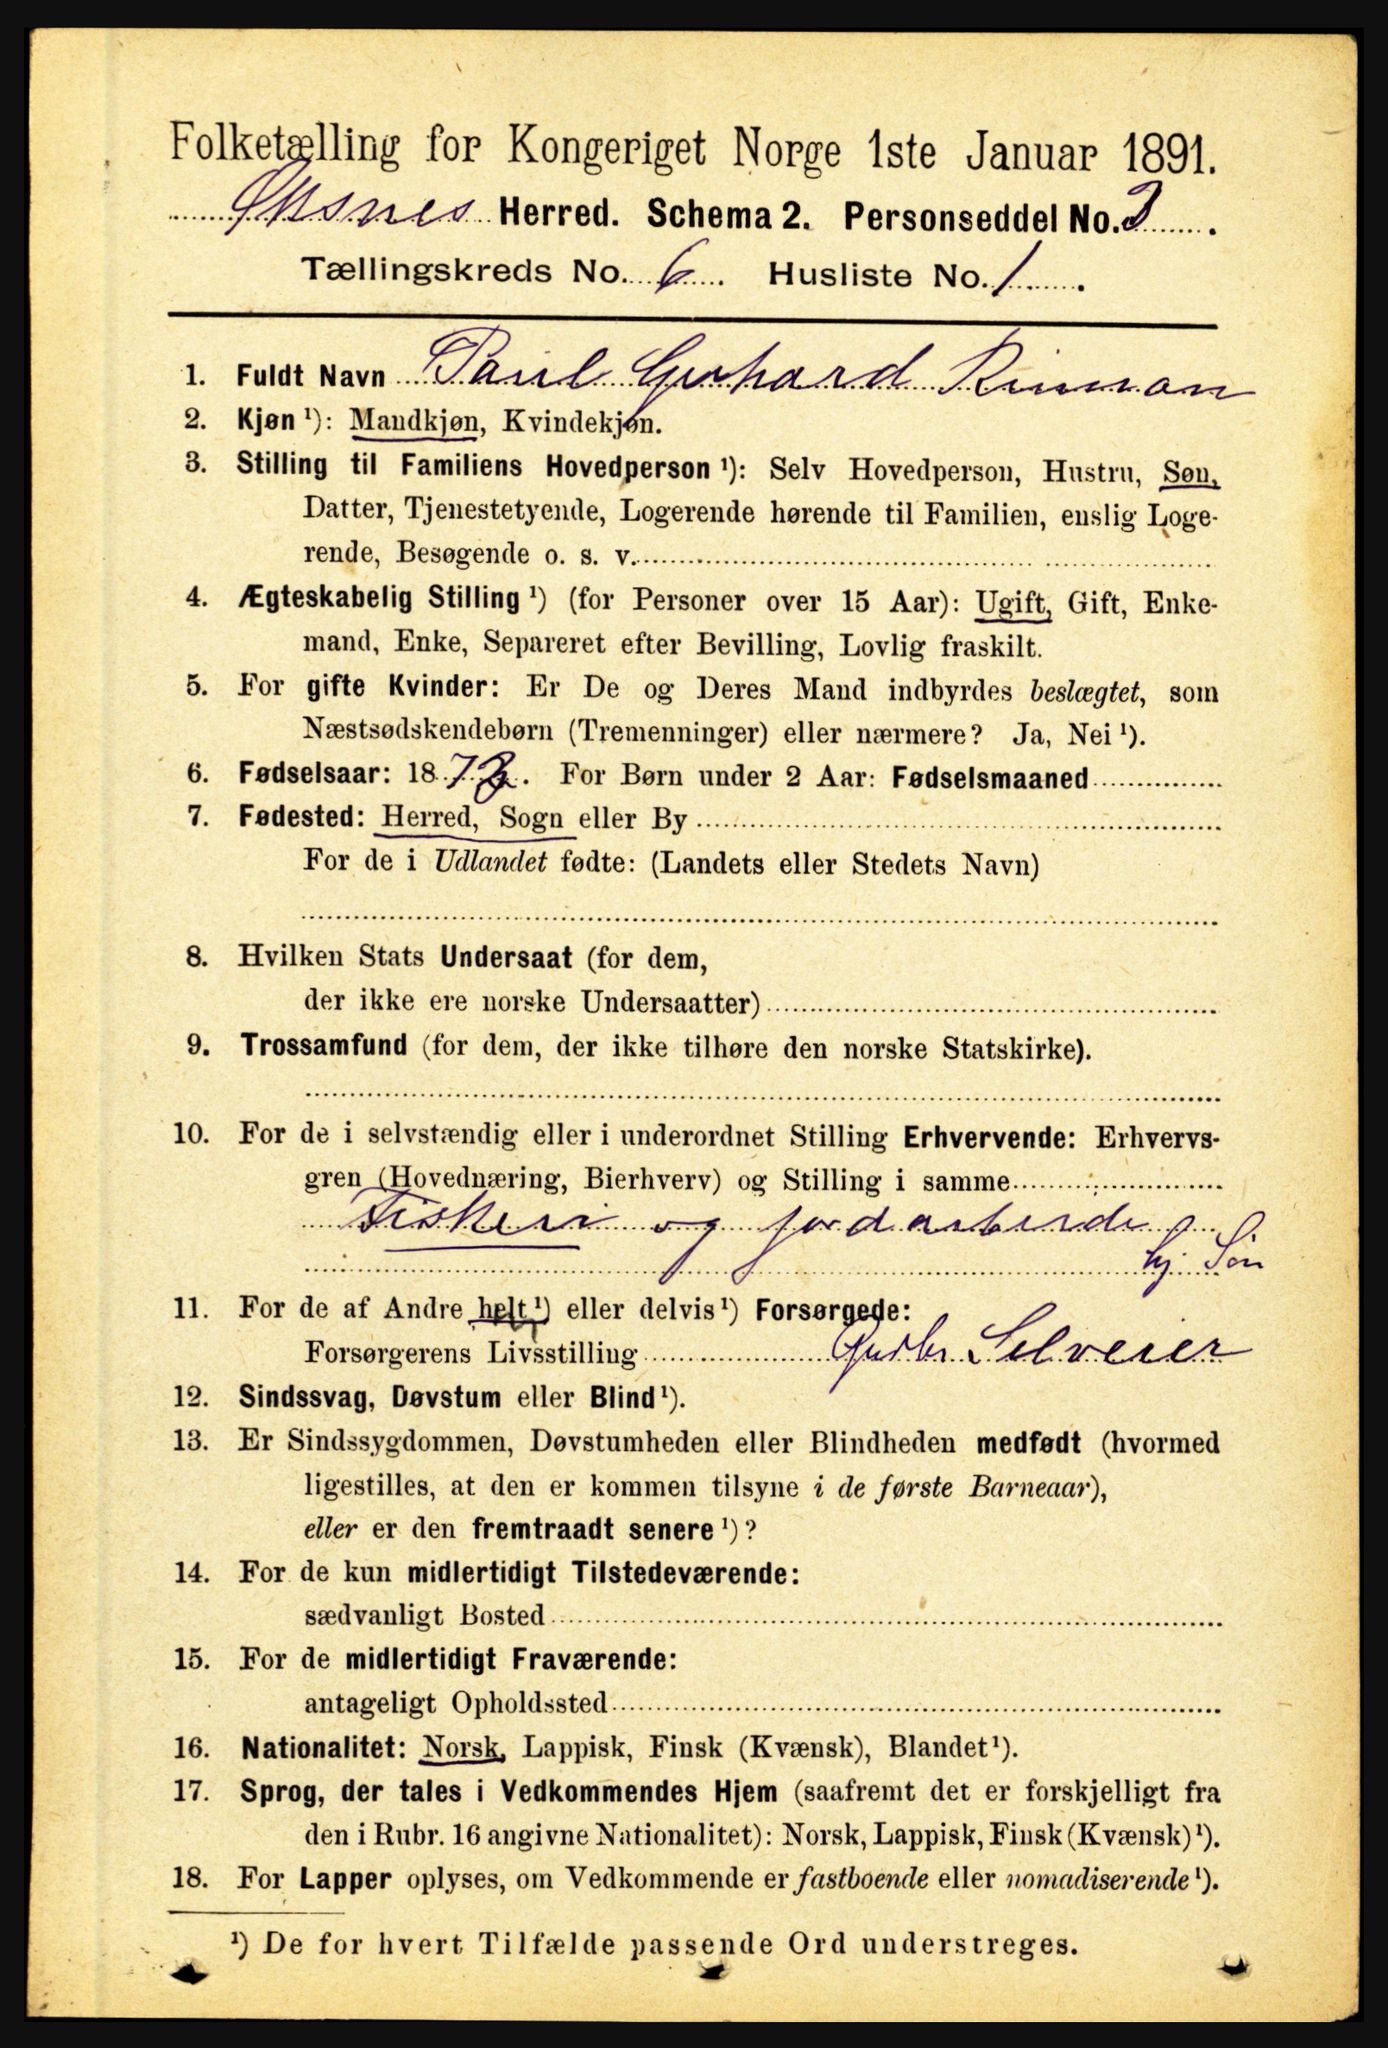 Folketælling for Kongeriget Norge 1ste Januar 1891.
Øksnes Herred. Schema 2. Personseddel No. 3.
Tællingskreds No. 6. Husliste No. 1.
1. Fuldt Navn Paul Gerhard
2. Kjøn ¹): Mandkjøn, Kvindekjøn.
3. Stilling til Familiens Hovedperson ¹): Selv Hovedperson, Hustru, Søn,
Datter, Tjenestetyende, Logerende hørende til Familien, enslig Loge-
rende, Besøgende o. s. v.
4. Ægteskabelig Stilling ¹) (for Personer over 15 Aar): Ugift, Gift, Enke-
mand, Enke, Separeret efter Bevilling, Lovlig fraskilt.
5. For gifte Kvinder: Er De og Deres Mand indbyrdes beslægtet, som
Næstsødskendebørn (Tremenninger) eller nærmere? Ja, Nei ¹).
6. Fødselsaar: 187 . For Børn under 2 Aar: Fødselsmaaned
7. Fødested: Herred, Sogn eller By
For de i Udlandet fødte: (Landets eller Stedets Navn)
8. Hvilken Stats Undersaat (for dem,
der ikke ere norske Undersaatter)
9. Trossamfund (for dem, der ikke tilhøre den norske Statskirke).
10. For de i selvstændig eller i underordnet Stilling Erhvervende: Erhvervs-
gren (Hovednæring, Bierhverv) og Stilling i samme
Fiskeri og jordarbeide
hj. Søn
11. For de af Andre helt ¹) eller delvis ¹) Forsørgede:
Forsørgerens Livsstilling Grdbr. Selveier
12. Sindssvag, Døvstum eller Blind ¹).
13. Er Sindssygdommen, Døvstumheden eller Blindheden medfødt (hvormed
ligestilles, at den er kommen tilsyne i de første Barneaar),
eller er den fremtraadt senere ¹)?
14. For de kun midlertidigt Tilstedeværende:
sædvanligt Bosted
15. For de midlertidigt Fraværende:
antageligt Opholdssted
16. Nationalitet: Norsk, Lappisk, Finsk (Kvænsk), Blandet ¹).
17. Sprog, der tales i Vedkommendes Hjem (saafremt det er forskjelligt fra
den i Rubr. 16 angivne Nationalitet): Norsk, Lappisk, Finsk (Kvænsk) ¹).
18. For Lapper oplyses, om Vedkommende er fastboende eller nomadiserende ¹).
¹) De for hvert Tilfælde passende Ord understreges.